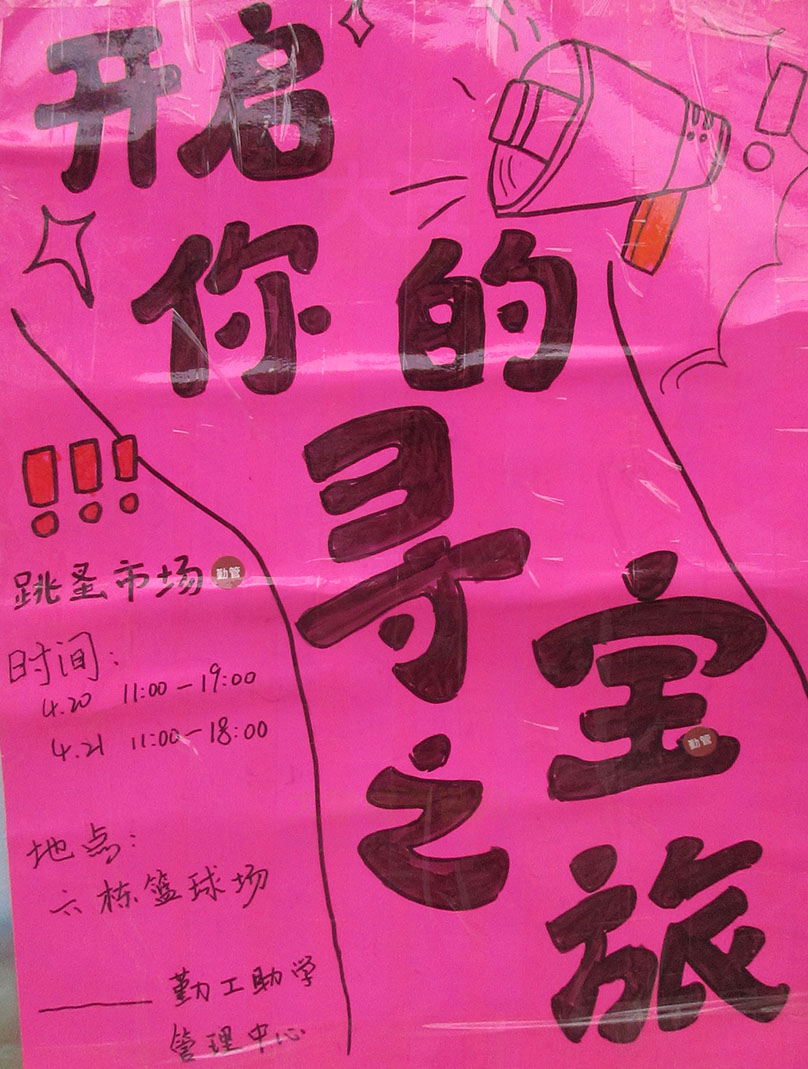 开启
你的
寻
宝
之
旅
!!!
跳蚤市场 勤管
时间:
4.20 11:00-19:00
4.21 11:00-18:00
地点:
六栋篮球场
——勤工助学
管理中心
勤管